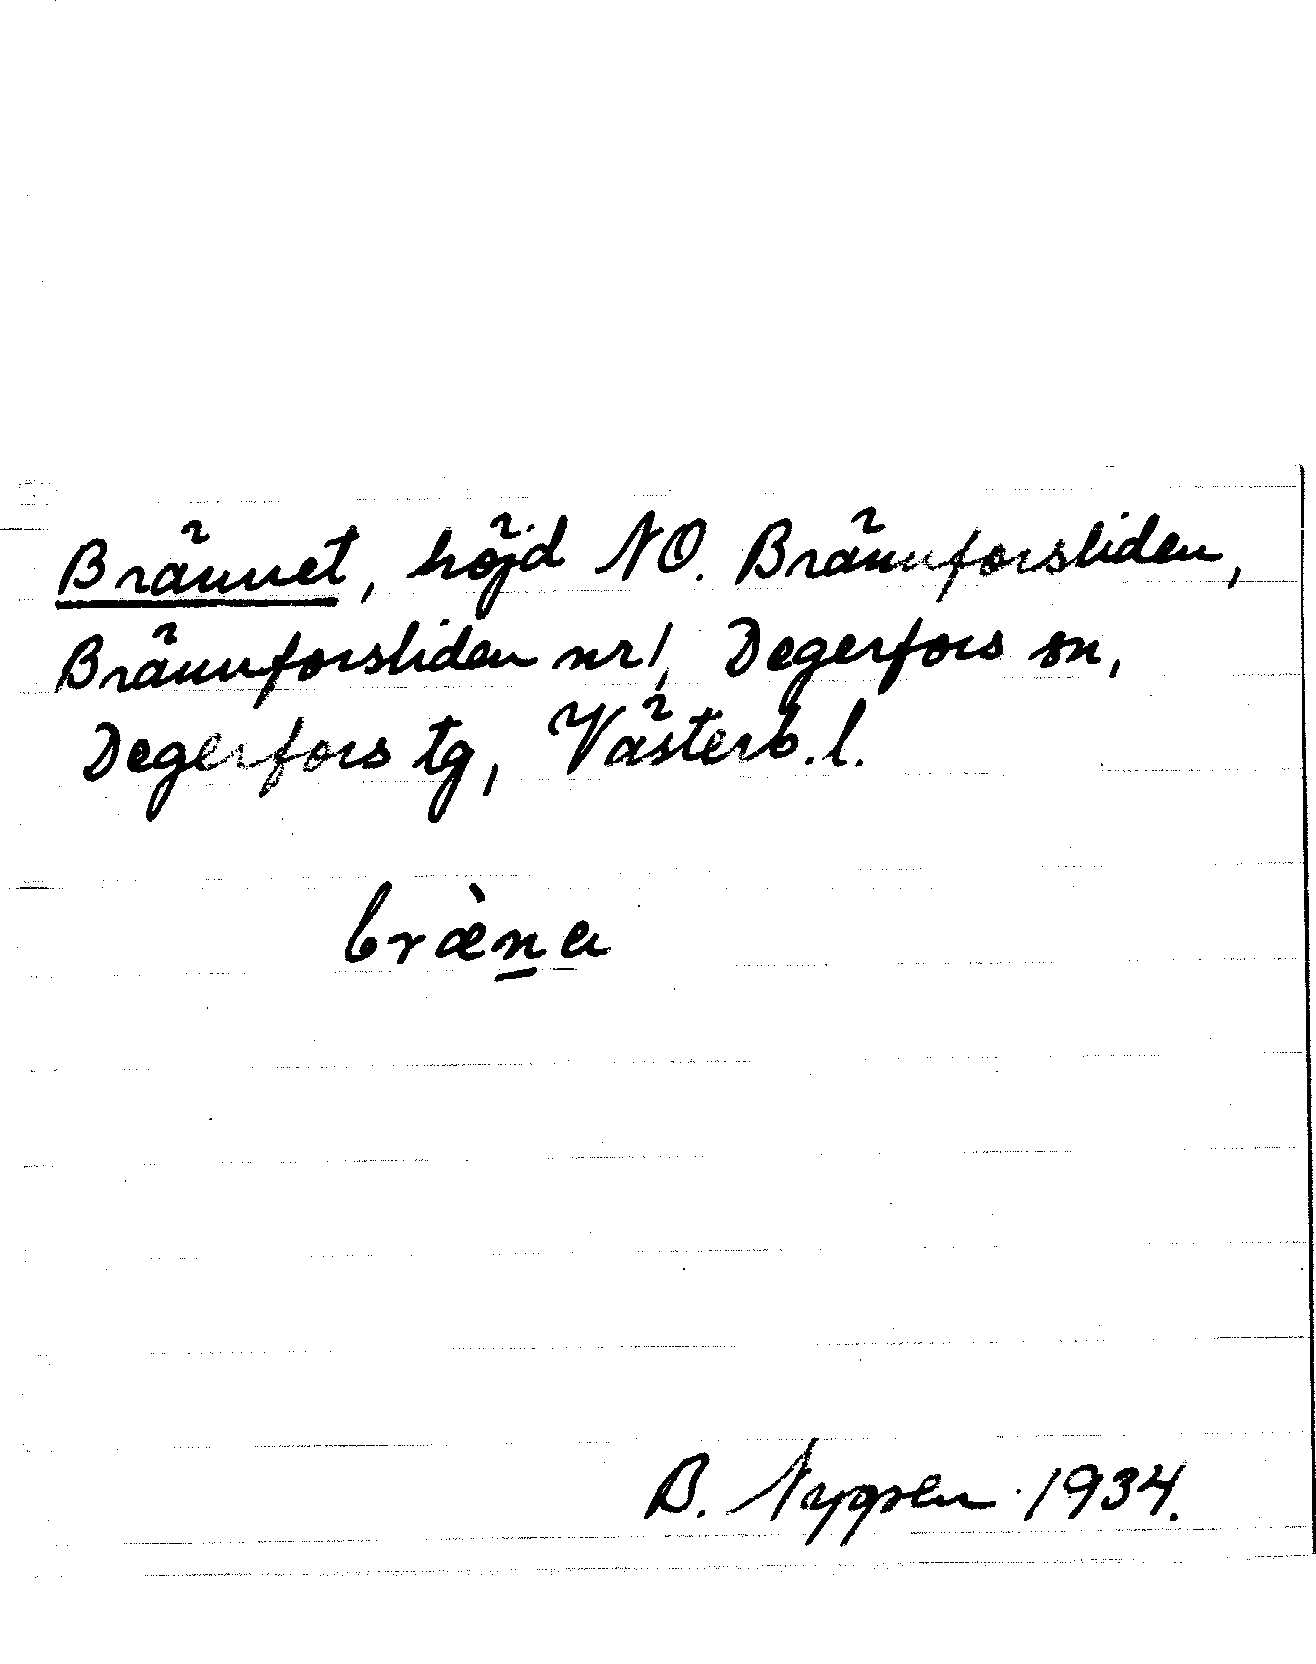 Brännet, höjd NO. Brännforsliden,
Brännforsliden nr 1, Degerfors sn,
Degerfors tg, Västerb. l.
bræ̀n̲a
B. Nygren 1934.